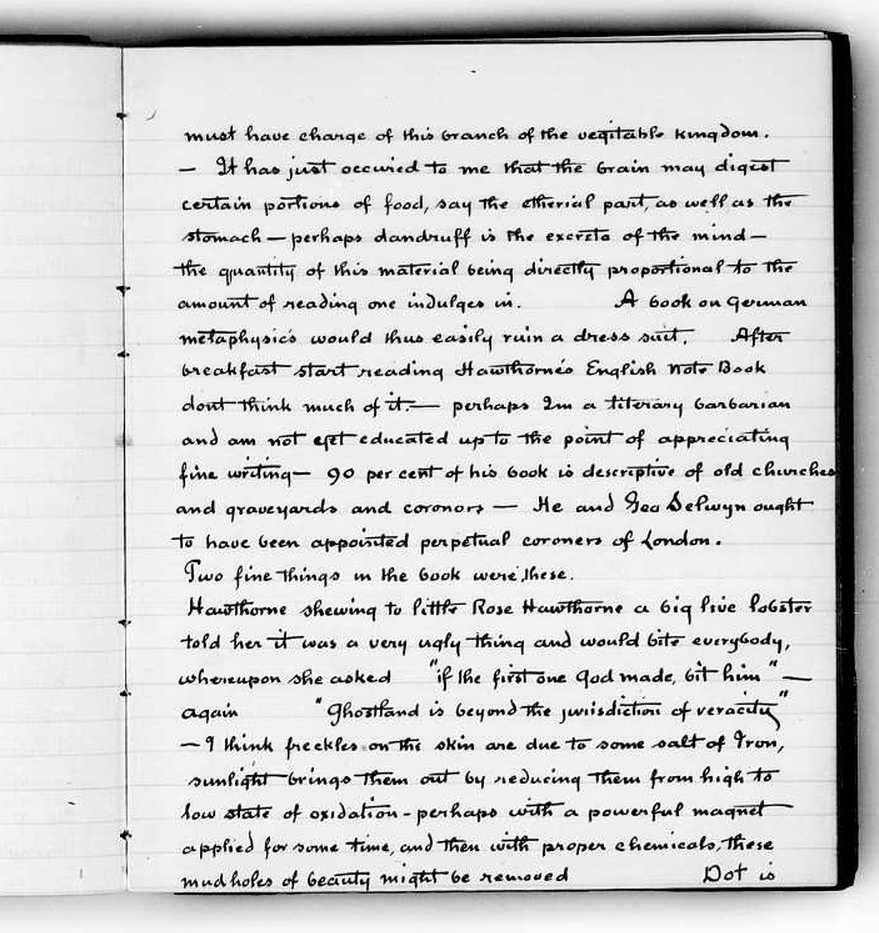 must have charge of this branch of the vegitable kingdom.
— It has just occured to me that the brain may digest
certain portions of food, say the etherial part, as well as the
stomach — perhaps dandruff is the excreta of the mind —
the quantity of this material being directly proportional to the
amount of reading one indulges in. A book on German
metaphysics would thus easily ruin a dress suit. After
breakfast start reading Hawthorne's English Note Book
dont think much of it. — perhaps Im a literary barbarian
and am not yet educated up to the point of appreciating
fine writing — 90 per cent of his book is descriptive of old churches
and graveyards and coronors — He and Geo Selwyn ought
to have been appointed perpetual coroners of London.
Two fine things in the book were these.
Hawthorne shewing to little Rose Hawthorne a big live lobster
told her it was a very ugly thing and would bite everybody,
whereupon she asked "if the first one God made, bit him" —
again "Ghostland is beyond the jurisdiction of veracity"
— I think freckles on the skin are due to some salt of Iron,
sunlight brings them out by reducing them from high to
low state of oxidation - perhaps with a powerful magnet
applied for some time, and then with proper chemicals, these
mudholes of beauty might be removed Dot is